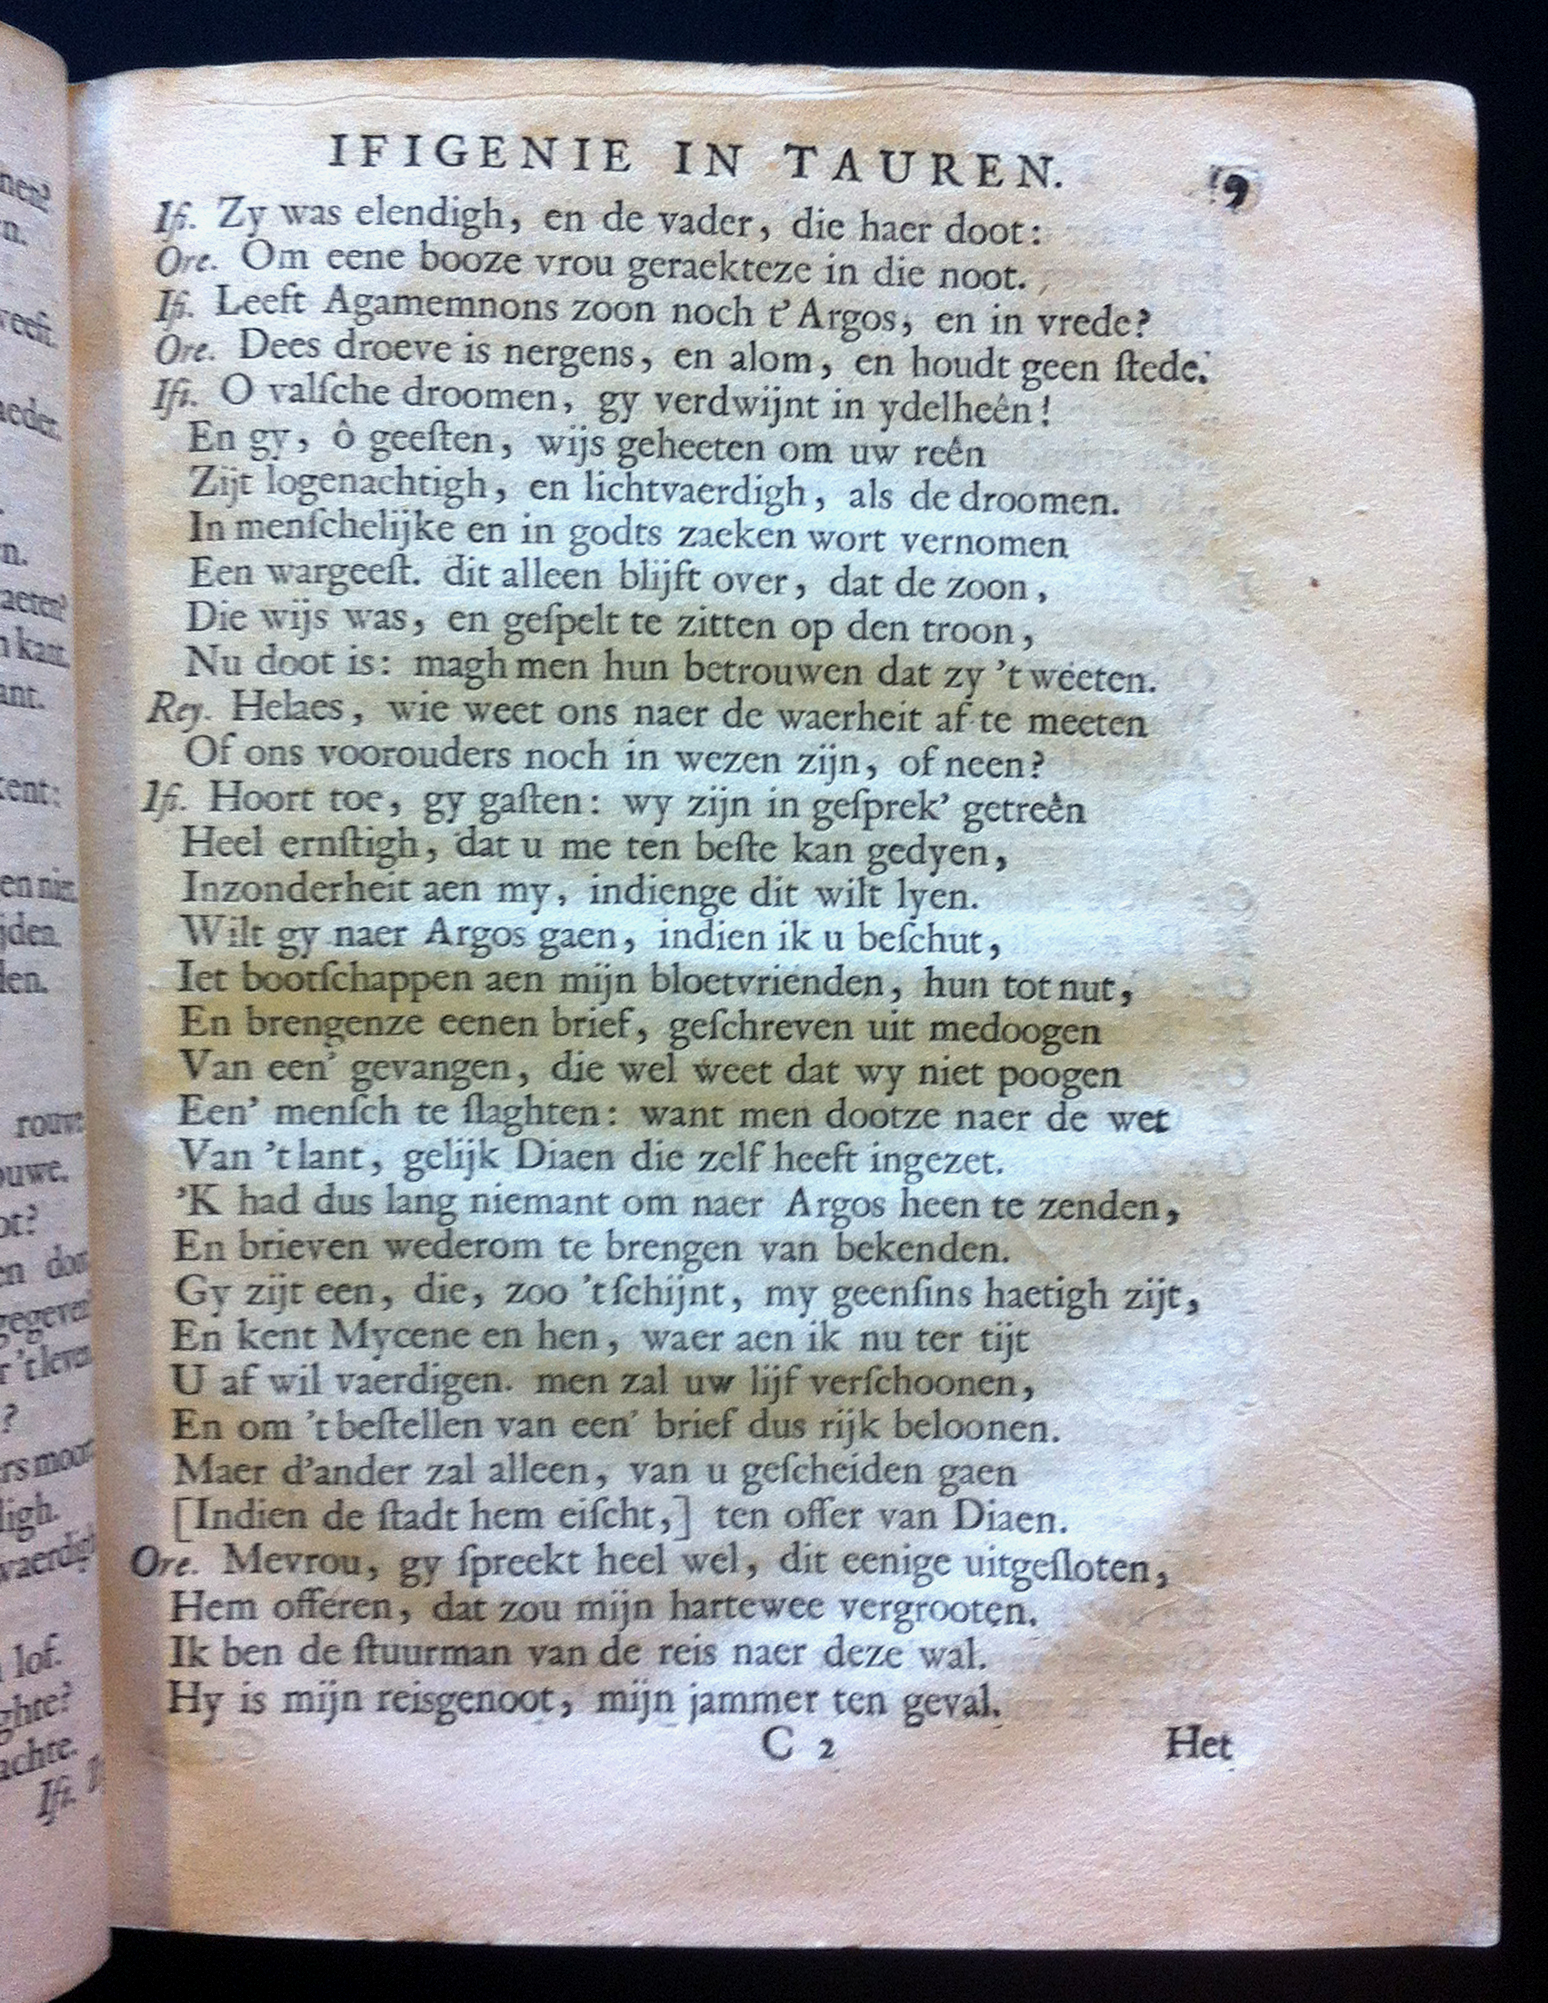 IFIGENIE IN TAUREN. 9
Ifi. Zy was elendigh, en de vader, die haer doot:
Ore. Om eene booze vrou geraekteze in die noot.
Ifi. Leeft Agamemnons zoon noch t'Argos, en in vrede?
Ore. Dees droeve is nergens, en alom, en houdt geen ſtede.
Ifi. O valſche droomen, gy verdwijnt in ydelheên!
En gy, ô geeſten, wijs geheeten om uw reên
Zijt logenachtigh, en lichtvaerdigh, als de droomen.
In menſchelijke en in godts zaeken wort vernomen
Een wargeeſt. dit alleen blijft over, dat de zoon,
Die wijs was, en geſpelt te zitten op den troon,
Nu doot is: magh men hun betrouwen dat zy 't weeten.
Rey. Helaes, wie weet ons naer de waerheit af te meeten
Of ons voorouders noch in wezen zijn, of neen?
Ifi. Hoort toe, gy gaſten: wy zijn in geſprek' getreên
Heel ernſtigh, dat u me ten beſte kan gedyen,
Inzonderheit aen my, indienge dit wilt lyen.
Wilt gy naer Argos gaen, indien ik u beſchut,
Iet bootſchappen aen mijn bloetvrienden, hun tot nut,
En brengenze eenen brief, geſchreven uit medoogen
Van een' gevangen, die wel weet dat wy niet poogen
Een' menſch te ſlaghten: want men dootze naer de wet
Van 't lant, gelijk Diaen die zelf heeft ingezet.
'K had dus lang niemant om naer Argos heen te zenden,
En brieven wederom te brengen van bekenden.
Gy zijt een, die, zoo 't ſchijnt, my geenſins haetigh zijt,
En kent Mycene en hen, waer aen ik nu ter tijt
U af wil vaerdigen. men zal uw lijf verſchoonen,
En om 't beſtellen van een' brief dus rijk beloonen.
Maer d'ander zal alleen, van u geſcheiden gaen
[Indien de ſtadt hem eiſcht,] ten offer van Diaen.
Ore. Mevrou, gy ſpreekt heel wel, dit eenige uitgeſloten,
Hem offéren, dat zou mijn hartewee vergrooten.
Ik ben de ſtuurman van de reis naer deze wal.
Hy is mijn reisgenoot, mijn jammer ten geval.
C 2 Het